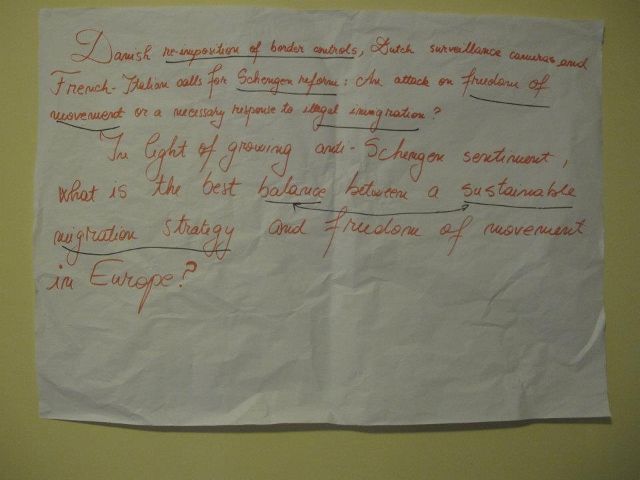 Danish re-imposition of border controls, Dutch surveillance cameras and
French-Italian calls for Schengen reform: An attack on freedom of
movement or a necessary response to illegal immigration?
In light of growing anti-Schengen sentiment,
what is the best balance between a sustainable
migration strategy and freedom of movement
in Europe?